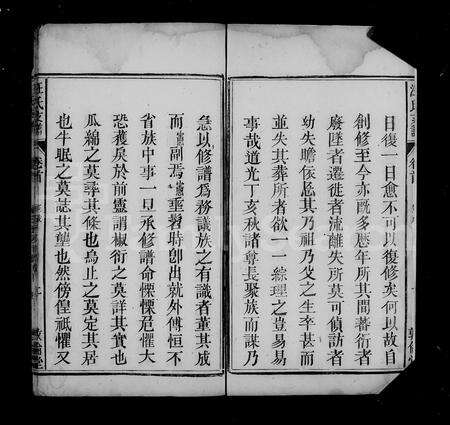 日復一日愈不可以復修矣何以故自
創修至今亦旣多歷年所其間蕃衍者
廢墜者遷徙者流離失所莫可偵訪者
幼失瞻依忘其乃祖乃父之生卒甚而
並失其葬所者欲一一綜理之豈易易
事哉道光丁亥秋諸尊長聚族而謀乃
急以修譜爲務議族之有識者董其成
而 副焉 垂髫時卽出就外傅恒不
省族中事一旦承修譜命慄慄危懼大
恐獲戾於前靈謂椒衍之莫詳其實也
瓜綿之莫尋其條也烏止之莫定其居
也牛眠之莫誌其壟也然傍偟祇懼又
汪氏支譜
卷首